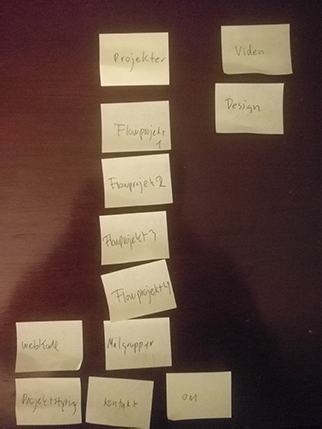 Projekter
Viden
Design
Flowprojekt
1
Flowprojekt 2
Flowprojekt 3
Flowprojekt 4
Webkode
Målgrupper
Projektstyring
kontakt
om